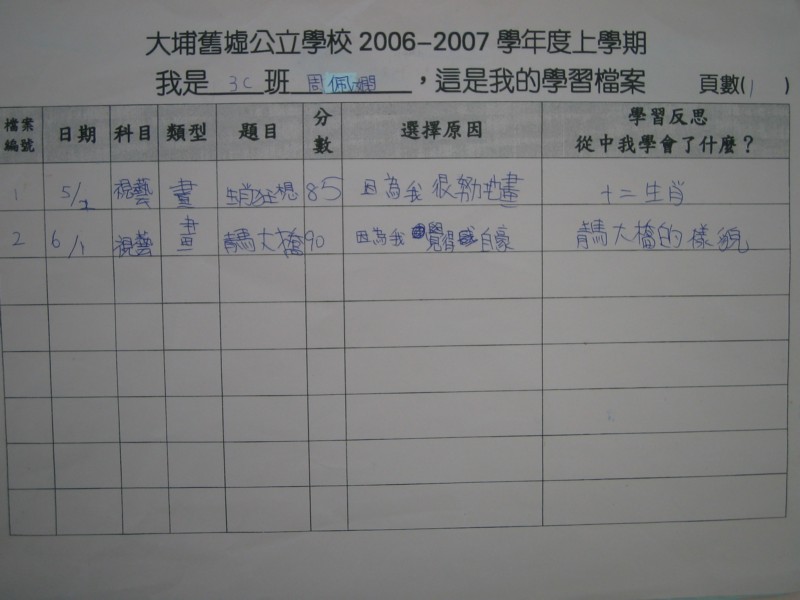 大埔舊墟公立學校 2006–2007 學年度上學期
我是 3C 班 周佩嫻 ，這是我的學習檔案 頁數(1)
檔案編號 日期 科目 類型 題目 分數 選擇原因 學習反思 從中我學會了什麼？
1 5/1 視藝 畫 生肖狂想 85 因為我很勤力地畫 十二生肖
2 6/1 視藝 畫 青馬大橋 90 因為我覺得自豪 青馬大橋的樣貌